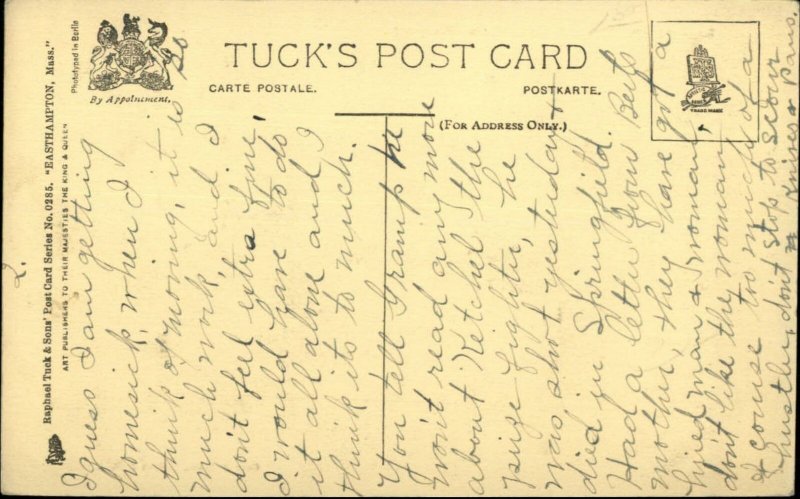 TUCK'S POST CARD
CARTE POSTALE.
POSTKARTE.
(FOR ADDRESS ONLY.)
By Appointment.
Phototyped in Berlin
Raphael Tuck & Sons' Post Card Series No. 0285. "EASTHAMPTON, Mass."
ART PUBLISHERS TO THEIR MAJESTIES THE KING & QUEEN
TRADE MARK
2.
I guess I am getting
homesick, when I
think of moving, it is so
much work, and I
don't feel extra fine,
I would have to do
it all alone and I
think its to much.
You tell Gramp he
won't read any more
about Ketchel the
prize fighter, he
was shot yesterday +
died in Springfield.
Had a letter from Berts
mother, they have got a
hired man & woman,
don't like the woman
of course too much of a
hustler, don't stop to scour
knives & pans.